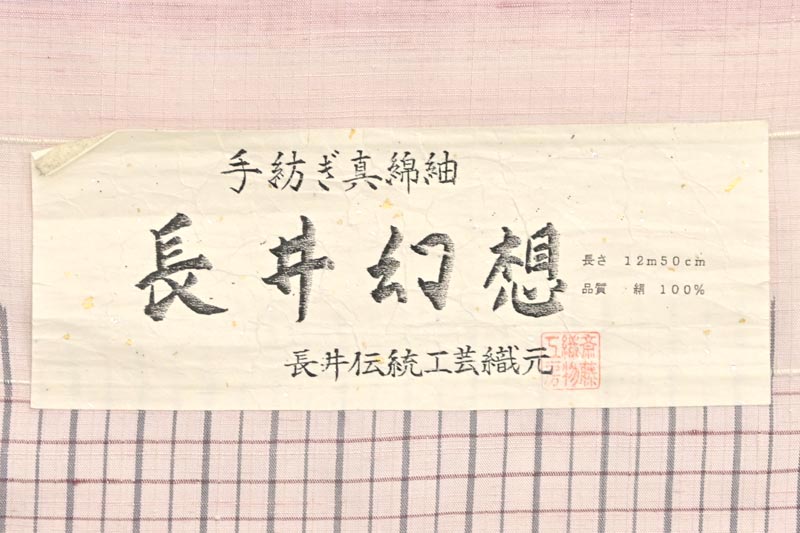 手紡ぎ真綿紬
長井幻想
長さ 12m50cm
品質 絹 100%
長井伝統工芸織元
斎藤
織物
工房